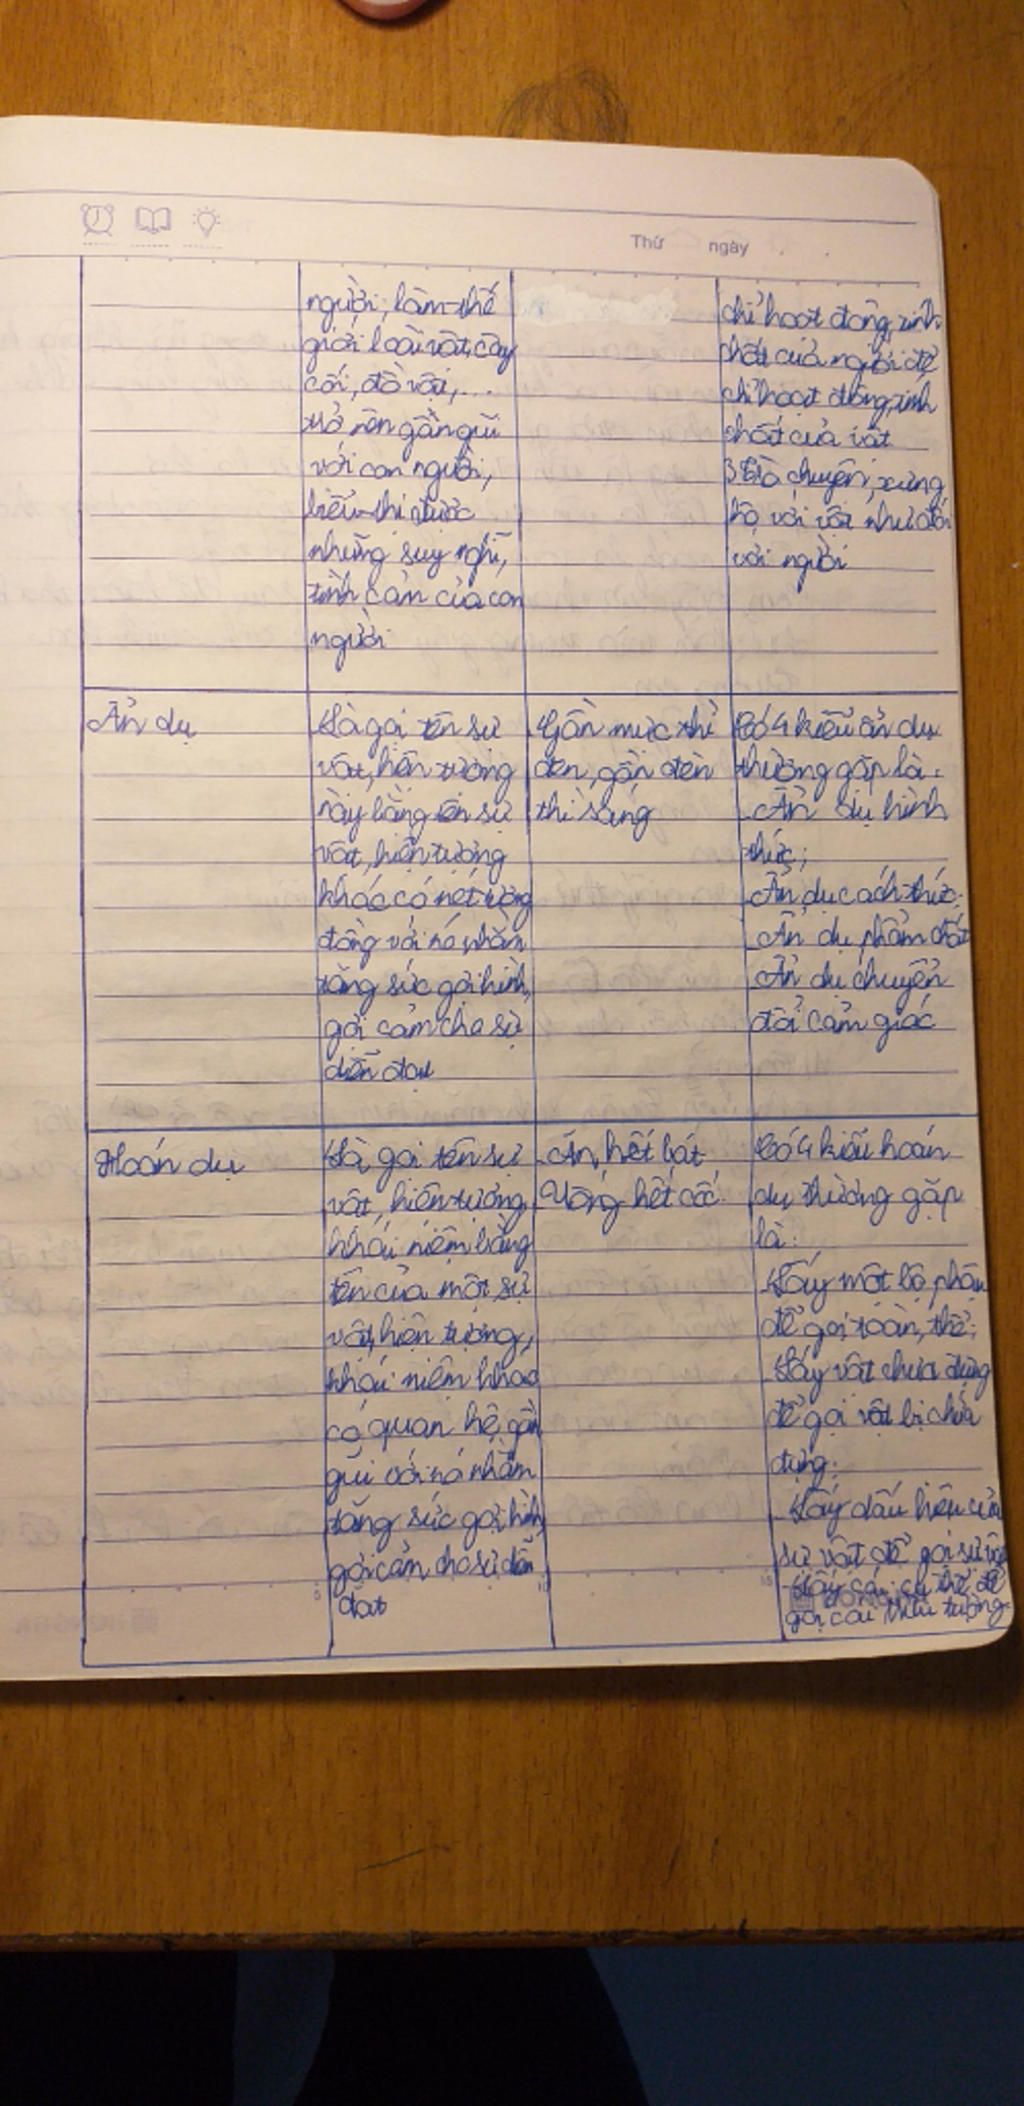 Thứ ngày
người, làm thế
giới loài vật, cây
cối, đồ vật,...
trở nên gần gũi
với con người,
biểu thị được
những suy nghĩ,
tình cảm của con
người
chỉ hoạt động, tính
chất của người để
chỉ hoạt động, tính
chất của vật
3 Trò chuyện, xưng
hô với vật như đối
với người
Ẩn dụ
Là gọi tên sự
vật, hiện tượng
này bằng tên sự
vật, hiện tượng
khác có nét tương
đồng với nó nhằm
tăng sức gợi hình,
gợi cảm cho sự
diễn đạt
Gần mực thì
đen, gần đèn
thì sáng
Có 4 kiểu ẩn dụ
thường gặp là:
- Ẩn dụ hình
thức;
- Ẩn dụ cách thức;
- Ẩn dụ phẩm chất
- Ẩn dụ chuyển
đổi cảm giác
Hoán dụ
Là gọi tên sự
vật, hiện tượng
khái niệm bằng
tên của một sự
vật, hiện tượng,
khái niệm khác
có quan hệ gần
gũi với nó nhằm
tăng sức gợi hình
gợi cảm cho sự diễn
đạt
- Ăn hết bát
Uống hết cốc
Có 4 kiểu hoán
dụ thường gặp
là:
- Lấy một bộ phận
để gọi toàn thể;
- Lấy vật chứa đựng
để gọi vật bị chứa
đựng;
- Lấy dấu hiệu của
sự vật để gọi sự vật
- Lấy cái cụ thể để
gọi cái trừu tượng
5 10 15